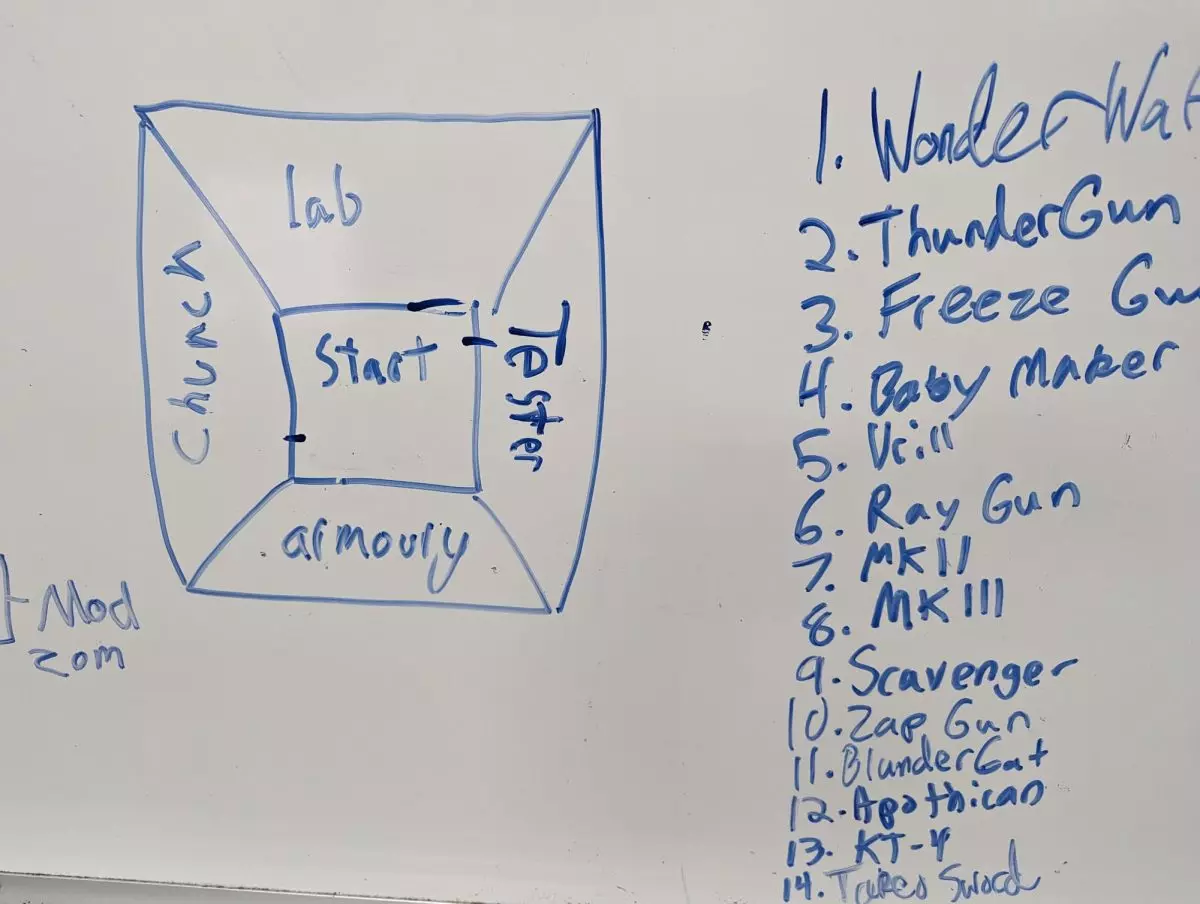 lab
Chunck
Start
Tester
armoury
Mod
zom
1. Wonder Waf
2. ThunderGun
3. Freeze Gu
4. Baby Maker
5. Vrill
6. Ray Gun
7. MKII
8. MKIII
9. Scavenger
10. Zap Gun
11. BlunderGat
12. Apothican
13. KT-4
14. Sword